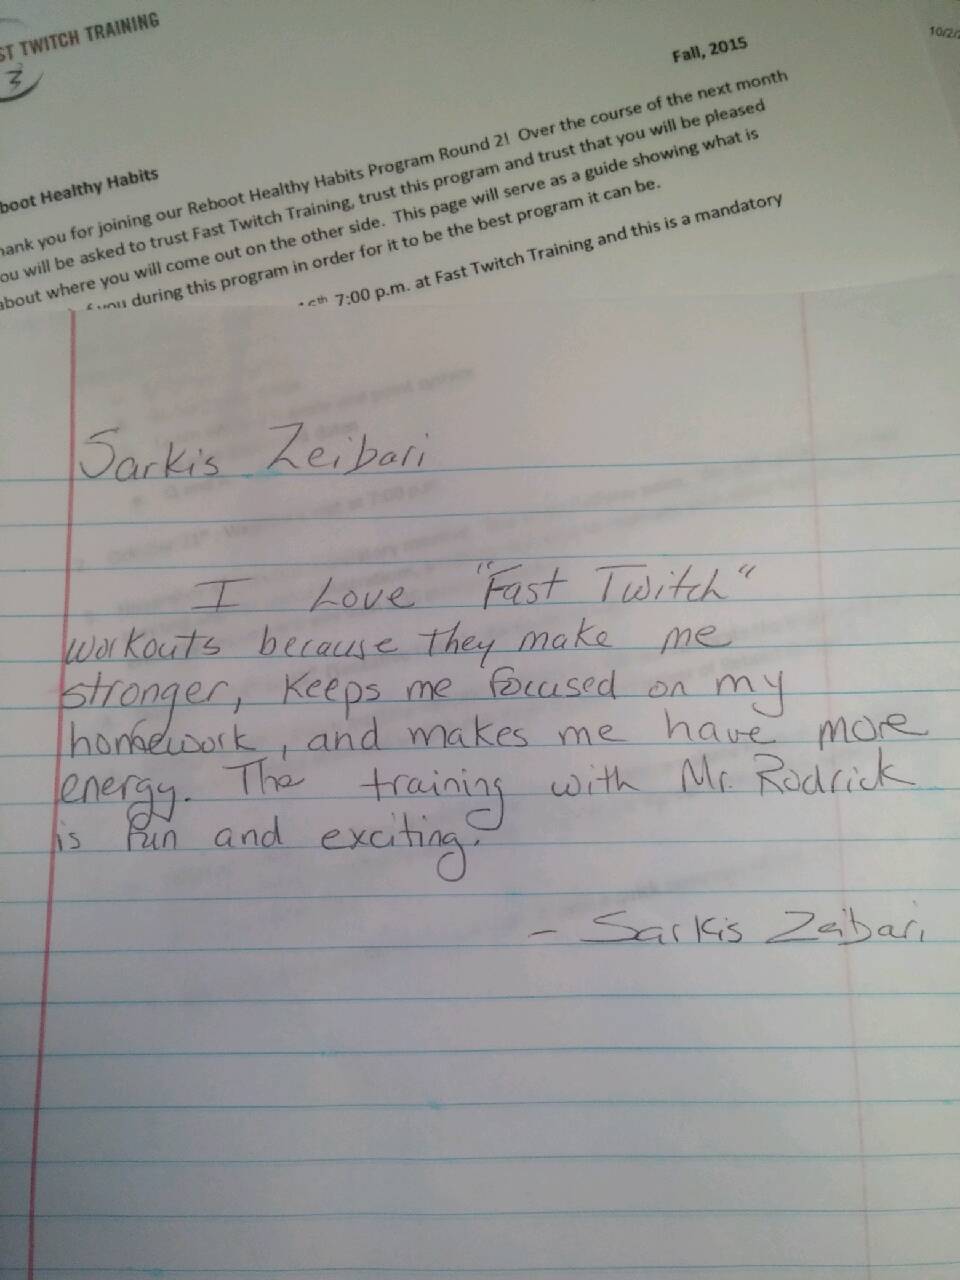 ST TWITCH TRAINING
3
10/2/2
Fall, 2015
boot Healthy Habits
hank you for joining our Reboot Healthy Habits Program Round 2! Over the course of the next month
ou will be asked to trust Fast Twitch Training, trust this program and trust that you will be pleased
about where you will come out on the other side. This page will serve as a guide showing what is
f you during this program in order for it to be the best program it can be.
7:00 p.m. at Fast Twitch Training and this is a mandatory
Sarkis Zeibari
I Love "Fast Twitch"
workouts because they make me
stronger, Keeps me focused on my
homework, and makes me have more
energy. The training with Mr. Rodrick
is fun and exciting.
- Sarkis Zeibari